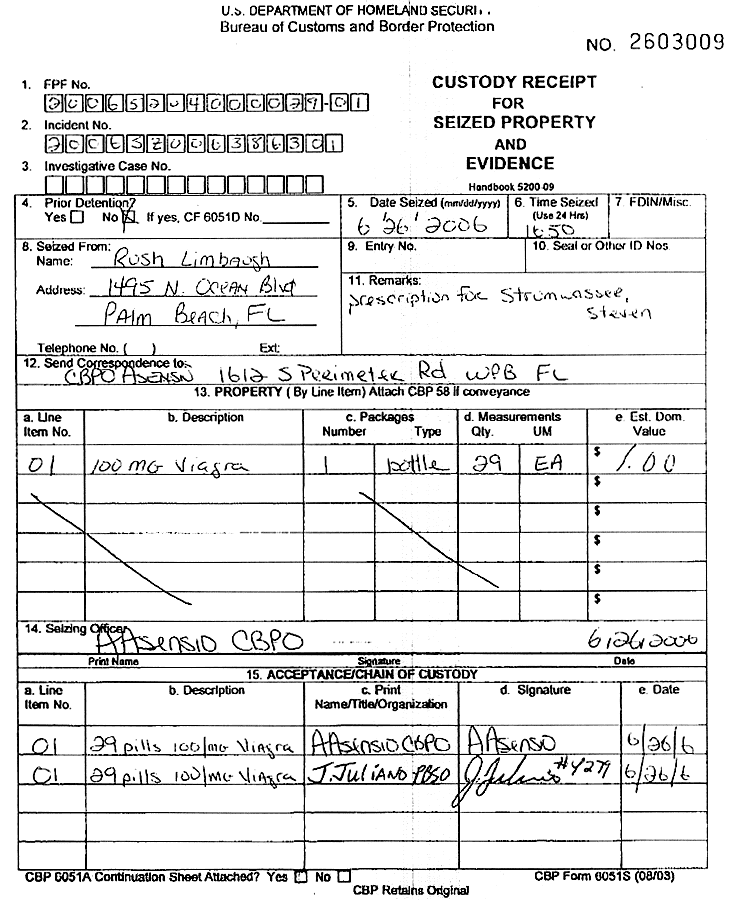 U.S. DEPARTMENT OF HOMELAND SECURI
Bureau of Customs and Border Protection
NO. 2603009
1. FPF No.
CUSTODY RECEIPT
FOR
SEIZED PROPERTY
AND
EVIDENCE
Handbook 5200-09
2. Incident No.
3. Investigative Case No.
4. Prior Detention?
Yes No X If yes, CF 6051D No.
5. Date Seized (mm/dd/yyyy)
6/26/2006
6. Time Seized
(Use 24 Hrs)
1650
7. FDIN/Misc.
8. Seized From:
Name: Rush Limbaugh
Address: 1495 N. Ocean Blvd
Palm Beach, FL
Telephone No. ( ) Ext:
9. Entry No.
10. Seal or Other ID Nos
11. Remarks:
prescription for Strumwasser,
Steven
12. Send Correspondence to:
CBPO Asensio 1612 S Perimeter Rd WPB FL
13. PROPERTY ( By Line Item) Attach CBP 58 if conveyance
a. Line Item No. b. Description c. Packages Number Type d. Measurements Qty. UM e. Est. Dom. Value
01 100 mg Viagra 1 bottle 29 EA $ 1.00
$
$
$
$
$
14. Seizing Officer
AAsensio CBPO 6/26/2006
Print Name Signature Date
15. ACCEPTANCE/CHAIN OF CUSTODY
a. Line Item No. b. Description c. Print Name/Title/Organization d. Signature e. Date
01 29 pills 100/mg Viagra AAsensio CBPO AAsensio 6/26/6
01 29 pills 100/mg Viagra J. Juliano PBSO #4279 6/26/6
CBP 6051A Continuation Sheet Attached? Yes No
CBP Form 6051S (08/03)
CBP Retains Original